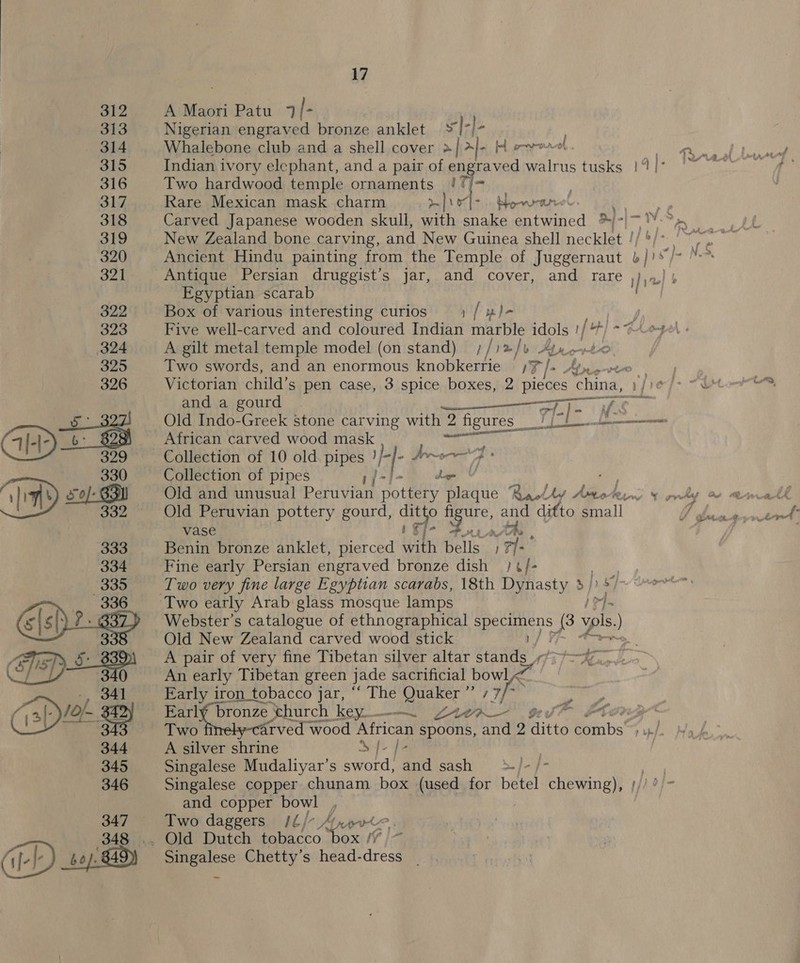 17
312 A Maori Patu 7/-
313 Nigerian engraved bronze anklet 5/-/-
314 Whalebone club and a shell cover
315 Indian ivory elephant, and a pair of engraved walrus tusks 19/-
316 Two hardwood temple ornaments
317 Rare Mexican mask charm
318 Carved Japanese wooden skull, with snake entwined
319 New Zealand bone carving, and New Guinea shell necklet
320 Ancient Hindu painting from the Temple of Juggernaut
321 Antique Persian druggist's jar, and cover, and rare
Egyptian scarab
322 Box of various interesting curios
323 Five well-carved and coloured Indian marble idols
324 A gilt metal temple model (on stand)
325 Two swords, and an enormous knobkerrie
326 Victorian child's pen case, 3 spice boxes, 2 pieces china,
and a gourd
327 Old Indo-Greek stone carving with 2 figures 7/-/-
328 African carved wood mask
329 Collection of 10 old pipes
330 Collection of pipes
331 Old and unusual Peruvian pottery plaque
332 Old Peruvian pottery gourd, ditto figure, and ditto small
vase
333 Benin bronze anklet, pierced with bells
334 Fine early Persian engraved bronze dish
335 Two very fine large Egyptian scarabs, 18th Dynasty
336 Two early Arab glass mosque lamps
337 Webster's catalogue of ethnographical specimens (3 vols.)
338 Old New Zealand carved wood stick
339 A pair of very fine Tibetan silver altar stands
340 An early Tibetan green jade sacrificial bowl
341 Early iron tobacco jar, “ The Quaker ”
342 Early bronze church key
343 Two finely-carved wood African spoons, and 2 ditto combs
344 A silver shrine
345 Singalese Mudaliyar's sword, and sash
346 Singalese copper chunam box (used for betel chewing),
and copper bowl
347 Two daggers
348 Old Dutch tobacco box
349 Singalese Chetty's head-dress